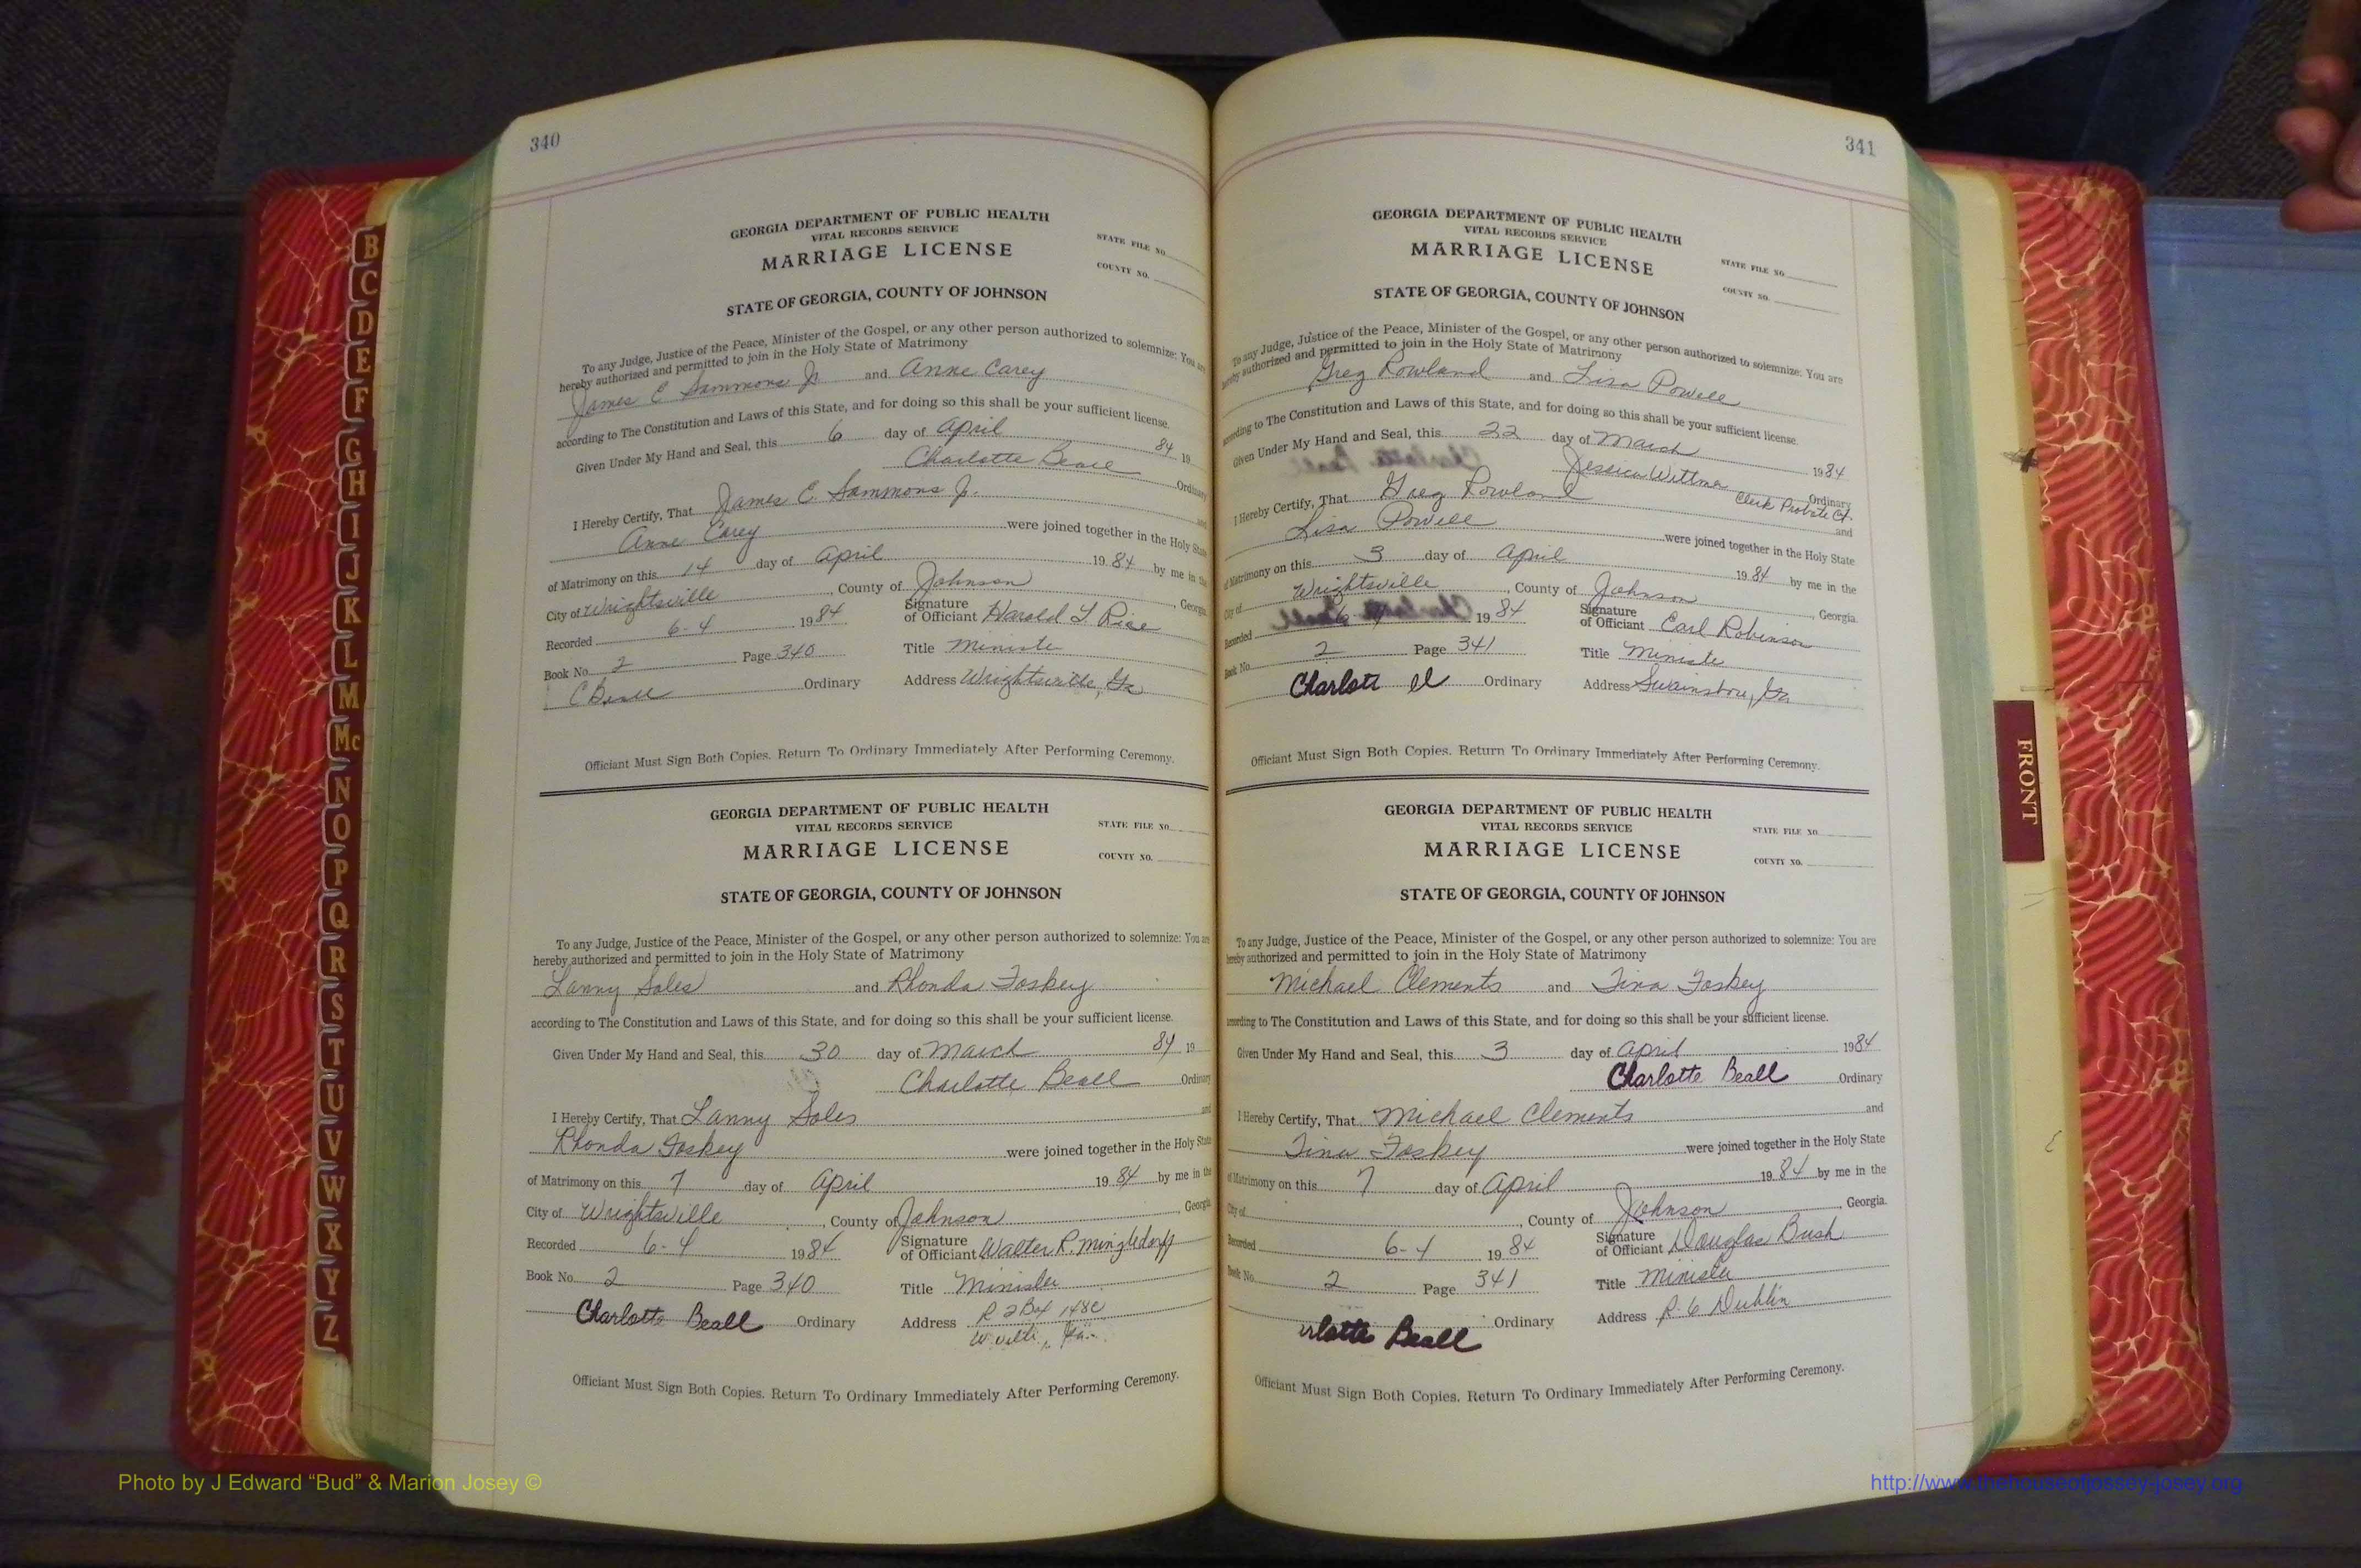 340
GEORGIA DEPARTMENT OF PUBLIC HEALTH
VITAL RECORDS SERVICE
MARRIAGE LICENSE
STATE FILE NO.
COUNTY NO.
STATE OF GEORGIA, COUNTY OF JOHNSON
To any Judge, Justice of the Peace, Minister of the Gospel, or any other person authorized to solemnize: You are
hereby authorized and permitted to join in the Holy State of Matrimony
James E Sammons Jr and Anne Carey
according to The Constitution and Laws of this State, and for doing so this shall be your sufficient license.
Given Under My Hand and Seal, this 6 day of April 84 19
Charlotte Beall Ordinary
I Hereby Certify, That James E. Sammons Jr. and
Anne Carey were joined together in the Holy State
of Matrimony on this 14 day of April 19 84 by me in the
City of Wrightsville, County of Johnson, Georgia
Recorded 6-4 1984 Signature of Officiant Harold L Rice
Book No. 2 Page 340 Title Ministe
C Beall Ordinary Address Wrightsville, Ga
Officiant Must Sign Both Copies. Return To Ordinary Immediately After Performing Ceremony.
GEORGIA DEPARTMENT OF PUBLIC HEALTH
VITAL RECORDS SERVICE
MARRIAGE LICENSE
STATE FILE NO.
COUNTY NO.
STATE OF GEORGIA, COUNTY OF JOHNSON
To any Judge, Justice of the Peace, Minister of the Gospel, or any other person authorized to solemnize: You are
hereby authorized and permitted to join in the Holy State of Matrimony
Lanny Soles and Rhonda Foskey
according to The Constitution and Laws of this State, and for doing so this shall be your sufficient license.
Given Under My Hand and Seal, this 30 day of March 84 19
Charlotte Beall Ordinary
I Hereby Certify, That Lanny Soles and
Rhonda Foskey were joined together in the Holy State
of Matrimony on this 7 day of April 19 84 by me in the
City of Wrightsville, County of Johnson, Georgia
Recorded 6-4 1984 Signature of Officiant Walter R. Mingledorff
Book No. 2 Page 340 Title Minister
Charlotte Beall Ordinary Address R 2 Box 148C
W'ville, Ga.
Officiant Must Sign Both Copies. Return To Ordinary Immediately After Performing Ceremony.
341
GEORGIA DEPARTMENT OF PUBLIC HEALTH
VITAL RECORDS SERVICE
MARRIAGE LICENSE
STATE FILE NO.
COUNTY NO.
STATE OF GEORGIA, COUNTY OF JOHNSON
To any Judge, Justice of the Peace, Minister of the Gospel, or any other person authorized to solemnize: You are
hereby authorized and permitted to join in the Holy State of Matrimony
Greg Rowland and Lisa Powell
according to The Constitution and Laws of this State, and for doing so this shall be your sufficient license.
Given Under My Hand and Seal, this 22 day of March 1984
Jessica Wittmer Ordinary
Clerk Probate Ct.
I Hereby Certify, That Greg Rowland and
Lisa Powell were joined together in the Holy State
of Matrimony on this 3 day of April 19 84 by me in the
City of Wrightsville, County of Johnson, Georgia
Recorded 6 1984 Signature of Officiant Earl Robinson
Book No. 2 Page 341 Title Ministe
Charlott ll Ordinary Address Swainsboro, Ga.
Officiant Must Sign Both Copies. Return To Ordinary Immediately After Performing Ceremony.
GEORGIA DEPARTMENT OF PUBLIC HEALTH
VITAL RECORDS SERVICE
MARRIAGE LICENSE
STATE FILE NO.
COUNTY NO.
STATE OF GEORGIA, COUNTY OF JOHNSON
To any Judge, Justice of the Peace, Minister of the Gospel, or any other person authorized to solemnize: You are
hereby authorized and permitted to join in the Holy State of Matrimony
Michael Clements and Tina Foskey
according to The Constitution and Laws of this State, and for doing so this shall be your sufficient license.
Given Under My Hand and Seal, this 3 day of April 1984
Charlotte Beall Ordinary
I Hereby Certify, That Michael Clements and
Tina Foskey were joined together in the Holy State
of Matrimony on this 7 day of April 19 84 by me in the
City of , County of Johnson, Georgia
Recorded 6-4 19 84 Signature of Officiant Douglas Bush
Book No. 2 Page 341 Title Minister
rlotte Beall Ordinary Address R-6 Dublin
Officiant Must Sign Both Copies. Return To Ordinary Immediately After Performing Ceremony.
B
C
D
E
F
G
H
I
J
K
L
M
Mc
N
O
P
Q
R
S
T
U
V
W
X
Y
Z
FRONT
Photo by J Edward “Bud” & Marion Josey ©
http://www.thehouseofjossey-josey.org